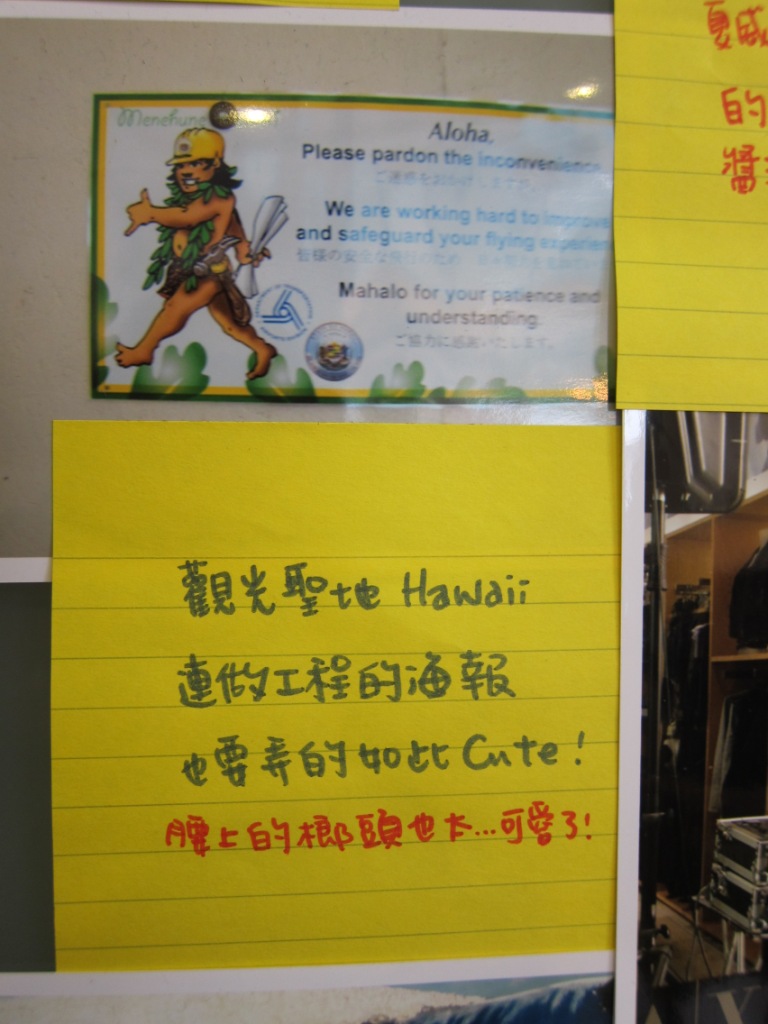 Menehune
Aloha,
Please pardon the inconvenience
ご迷惑をおかけしますが、
We are working hard to improve
and safeguard your flying experien
皆様の安全な飛行のため
Mahalo for your patience and
understanding.
ご協力に感謝いたします。
夏威
的
醬
觀光聖地 Hawaii
連做工程的海報
也要弄的如此 Cute!
腰上的榔頭也太...可愛了!